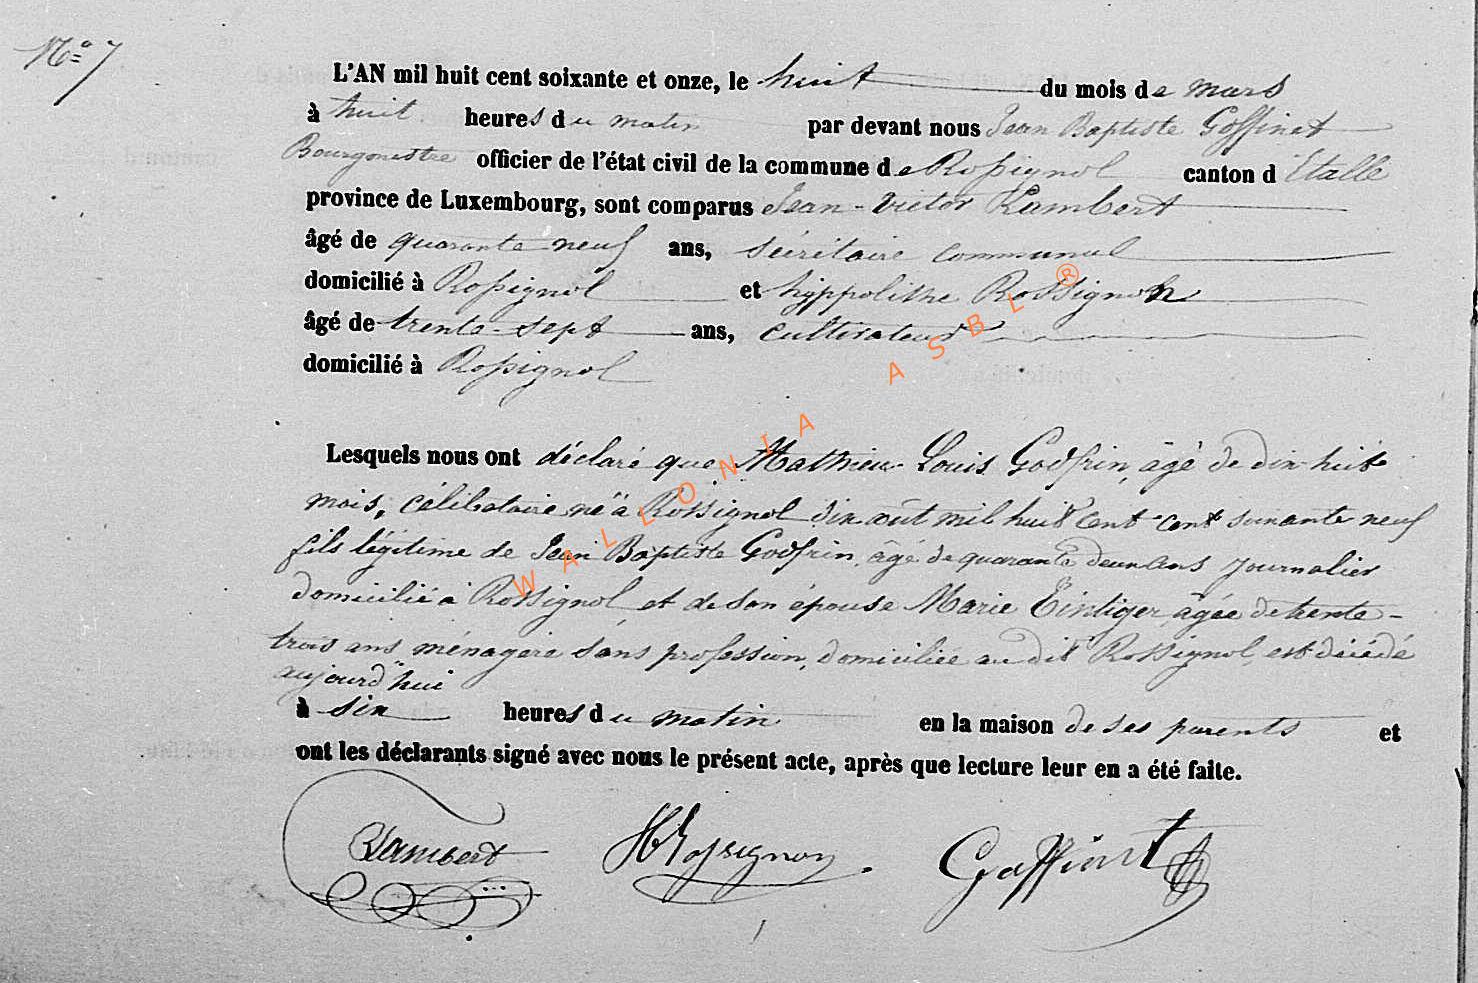 N° 7
L'AN mil huit cent soixante et onze, le huit du mois de mars
à huit heures du matin par devant nous Jean Baptiste Goffinet
Bourgmestre officier de l'état civil de la commune de Rossignol canton d'Etalle
province de Luxembourg, sont comparus Jean-Victor Lambert
âgé de quarante neuf ans, sécrétaire communal
domicilié à Rossignol et hyppolithe Rossignon
âgé de trente-sept ans, cultivateur
domicilié à Rossignol
Lesquels nous ont déclaré que Mathieu Louis Godfrin, âgé de dix-huit
mois, célibataire né à Rossignol dix août mil huit cent cent soixante neuf
fils légitime de Jean Baptiste Godfrin, âgé de quarante deux ans journalier
domicilié à Rossignol et de son épouse Marie Eintiger âgée de trente-
trois ans ménagère sans profession, domiciliée au dit Rossignol, est décédé
aujourd'hui
à six heures du matin en la maison de ses parents et
ont les déclarants signé avec nous le présent acte, après que lecture leur en a été faite.
Lambert HRossignon Goffinet
WALLONIA ASBL ®